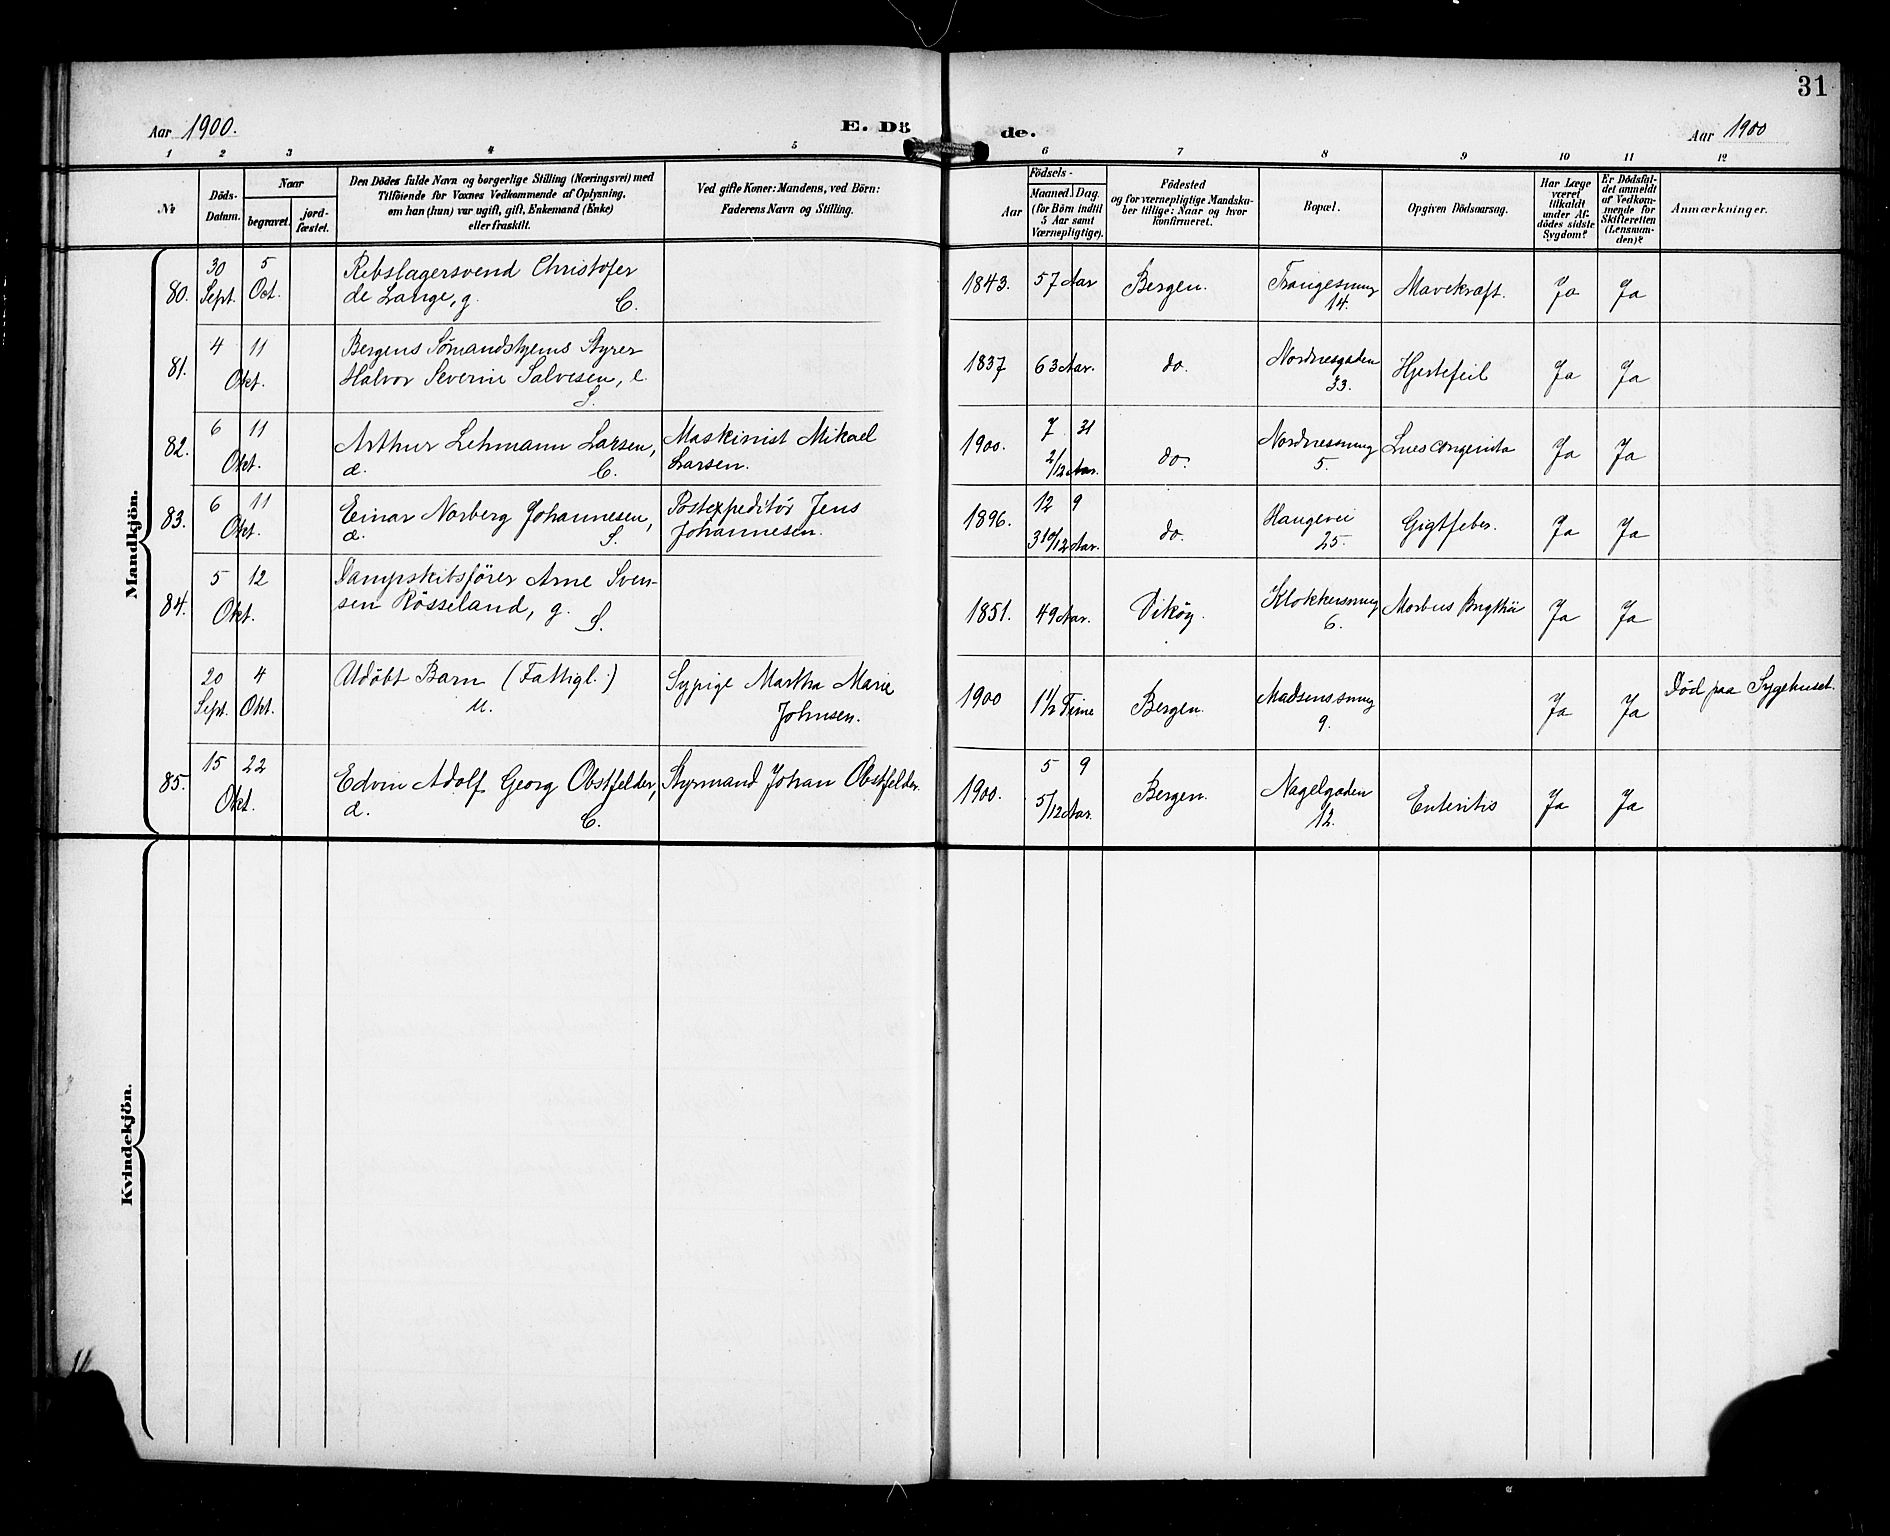 31
Aar 1900.
E. Dö
de.
Aar 1900
1 2 3 4 5 6 7 8 9 10 11 12
No
Döds-
Datum.
Naar
begravet.
jord-
fæstet.
Den Dödes fulde Navn og borgerlige Stilling (Næringsvei) med
Tilföiende for Voxnes Vedkommende af Oplysning,
om han (hun) var ugift, gift, Enkemand (Enke)
eller fraskilt.
Ved gifte Koner: Mandens, ved Börn:
Faderens Navn og Stilling.
Aar
Födsels-
Maaned. Dag.
(for Börn indtil
5 Aar samt
Værnepligtige).
Födested
og for værnepligtige Mandska-
ber tillige: Naar og hvor
konfirmeret.
Bopæl.
Opgiven Dödsaarsag.
Har Læge
været
tilkaldt
under Af-
dödes sidste
Sygdom?
Er Dödsfal-
det anmeldt
af Vedkom-
mende for
Skifteretten
(Lensman-
den)?
Anmærkninger.
Mandkjön.
80.
30
Sept.
5
Oct.
Rebslagersvend Christofer
de Lange, g.
C.
1843.
57 Aar
Bergen.
Trangesmug
14.
Mavekræft.
Ja
Ja
81.
4 11
Okt.
Bergens Sømandshjems Styrer
Halvor Severin Salvesen, e.
S.
1837
63 Aar.
do.
Nordnesgaden
33.
Hjertefeil
Ja
Ja
82.
6 11
Okt.
Arthur Lehmann Larsen,
d. C.
Maskinist Mikael
Larsen.
1900.
7 31
2/12 Aar.
do.
Nordnessmug
5.
Lues congenita
Ja
Ja
83.
6 11
Okt.
Einar Norberg Johannesen,
d. S.
Postexpeditör Jens
Johannesen.
1896.
12 9
3 10/12 Aar.
do.
Haugevei
25.
Gigtfeber.
Ja
Ja
84.
5 12
Okt.
Dampskibsförer Arne Sven-
sen Rösseland, g.
S.
1851.
49 Aar.
Vikøy.
Klokkersmug
6.
Morbus Brigthii
Ja
Ja
20
Sept.
4
Okt.
Udöbt Barn (Fattigl.)
u.
Sypige Martha Marie
Johnsen.
1900
1 1/2 Time
Bergen.
Madsenssmug
9.
Ja
Ja
Død paa Sygehuset.
85.
15 22
Okt.
Edvin Adolf Georg Obstfelder,
d. C.
Styrmand Johan Obstfelder.
1900.
5 9
5/12 Aar.
Bergen.
Nagelgaden
12.
Enteritis
Ja
Ja
Kvindekjön.